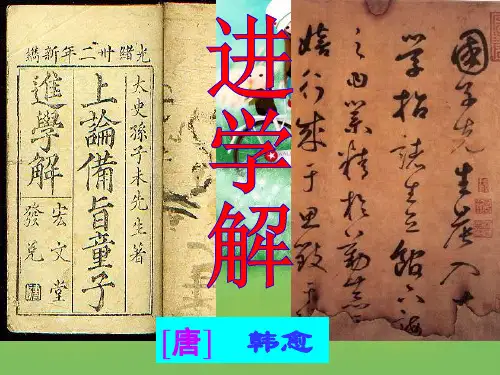 光緒卅二年新鐫
太史孫子未先生著
上論備旨童子
進學解
宏文堂
發兌
进学解
國子先生晨入太
学招諸生立館下誨
之曰業精於勤荒
嬉行成于思毀于
[唐] 韩愈